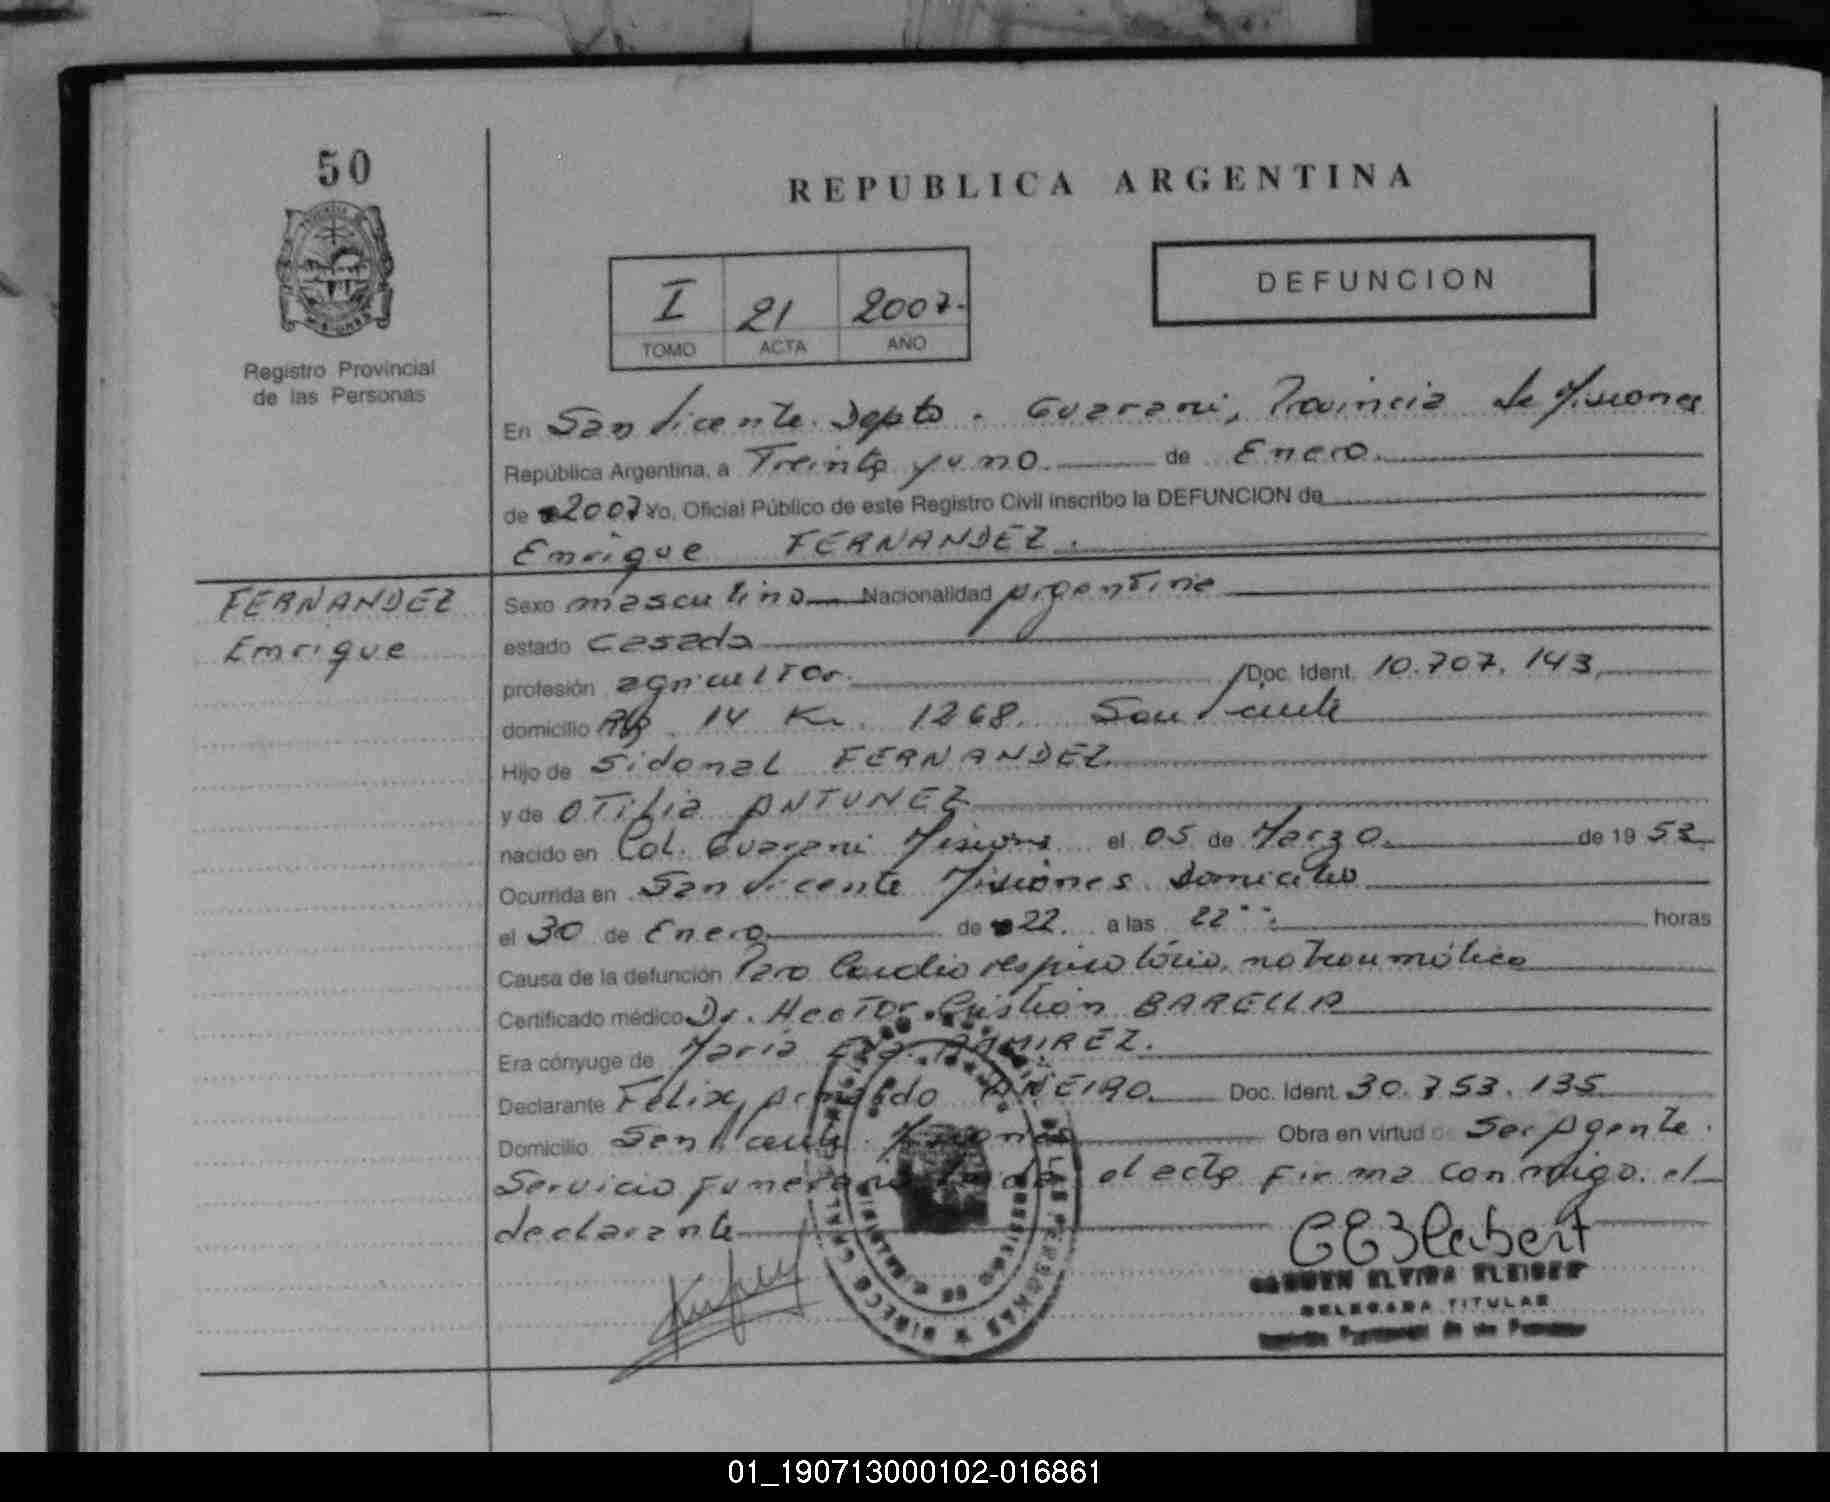 50
REPUBLICA ARGENTINA
DEFUNCION
I 21 2007.
TOMO ACTA AÑO
Registro Provincial
de las Personas
En San Vicente Depto. Guarani, Provincia de Misiones
República Argentina, a Treinta y uno. de Enero.
de 2007 Yo, Oficial Público de este Registro Civil inscribo la DEFUNCION de
Enrique FERNANDEZ.
FERNANDEZ
Enrique
Sexo masculino Nacionalidad argentina
estado casado
profesión agricultor. Doc. Ident. 10.707.143,
domicilio 14 Km. 1268. San Vicente
Hijo de Sidonal FERNANDEZ
y de OTilia ANTUNEZ
nacido en Col. Guarani Misiones el 05 de Marzo. de 19 53
Ocurrida en San Vicente Misiones Domicilio
el 30 de Enero de 22. a las 22 horas
Causa de la defunción Paro Cardio respiratório, no traumático
Certificado médico Dr. Hector Cristian BARELLA
Era cónyuge de Maria RAMIREZ.
Declarante Felix Armando Doc. Ident. 30.753.135
Domicilio San Vicente Misiones Obra en virtud de Ser Agente.
Servicio funerario el acta firma conmigo. el
declarante
CARMEN ELVIRA
DELEGADA TITULAR
01_190713000102-016861